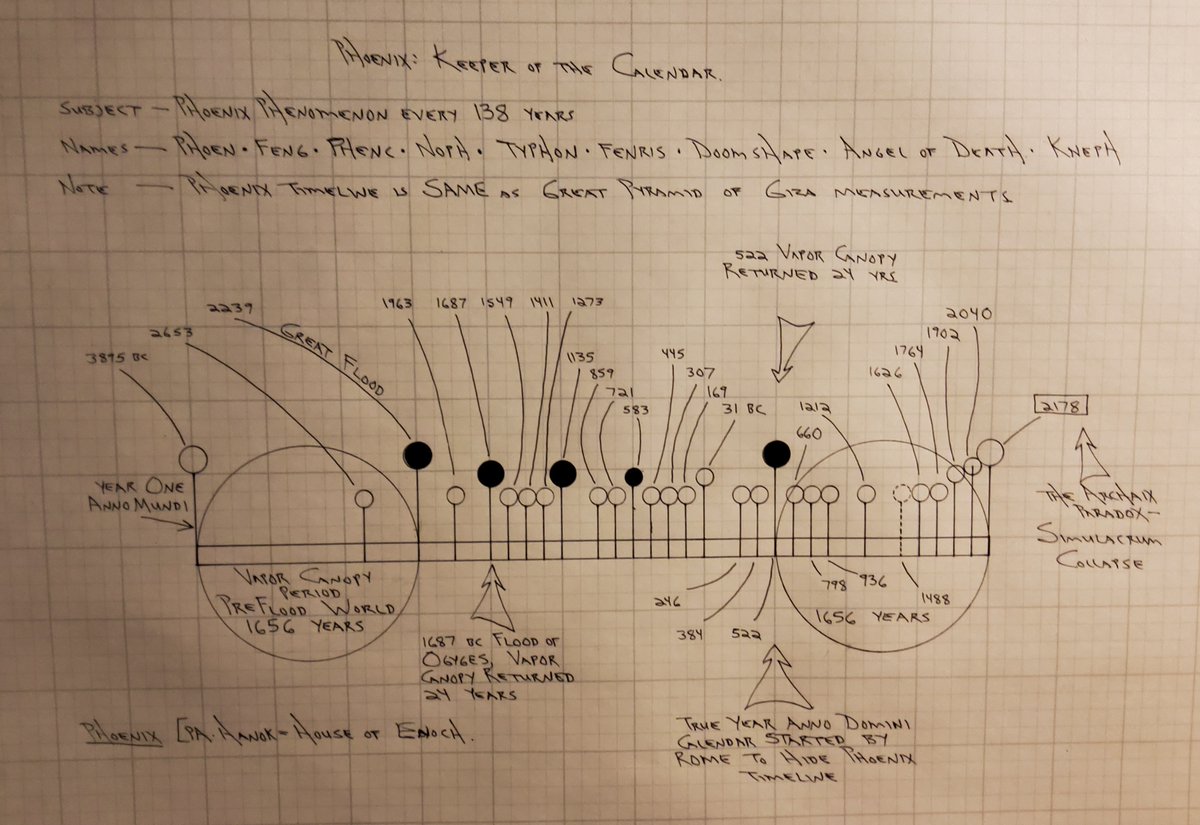 PHOENIX: KEEPER OF THE CALENDAR.
SUBJECT — PHOENIX PHENOMENON EVERY 138 YEARS
NAMES — PHOEN · FENG · PHENC · NOPH · TYPHON · FENRIS · DOOMSHAPE · ANGEL OF DEATH · KNEPH
NOTE — PHOENIX TIMELINE IS SAME AS GREAT PYRAMID OF GIZA MEASUREMENTS
522 VAPOR CANOPY
RETURNED 24 YRS
3895 BC
2653
2239
GREAT FLOOD
1963
1687
1549
1411
1273
1135
859
721
583
445
307
169
31 BC
1212
660
1626
1764
1902
2040
2178
YEAR ONE
ANNO MUNDI
VAPOR CANOPY
PERIOD
PREFLOOD WORLD
1656 YEARS
1687 BC FLOOD OF
OGYGES, VAPOR
CANOPY RETURNED
24 YEARS
246
384
522
798
936
1488
1656 YEARS
THE ARCHAIX
PARADOX—
SIMULACRUM
COLLAPSE
TRUE YEAR ANNO DOMINI
CALENDAR STARTED BY
ROME TO HIDE PHOENIX
TIMELINE
PHOENIX [PA·HANOK = HOUSE OF ENOCH.